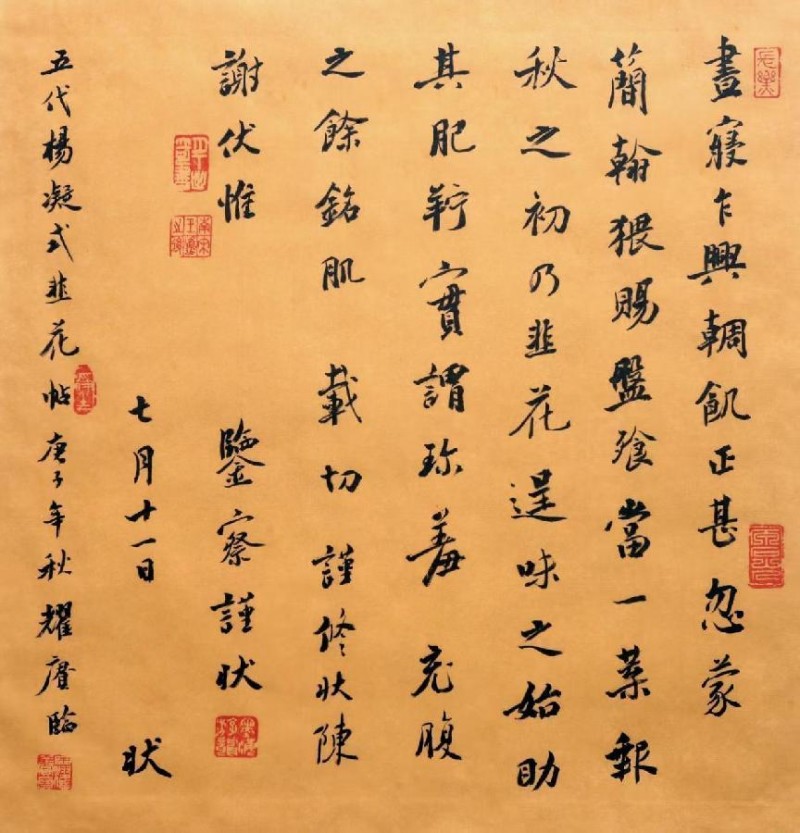 晝寢乍興輖飢正甚忽蒙
簡翰猥賜盤飱當一葉報
秋之初乃韭花逞味之始助
其肥羜實謂珍羞充腹
之餘銘肌載切謹修狀陳
謝伏惟鑒察謹狀
七月十一日狀
五代楊凝式韭花帖庚子年秋耀賡臨